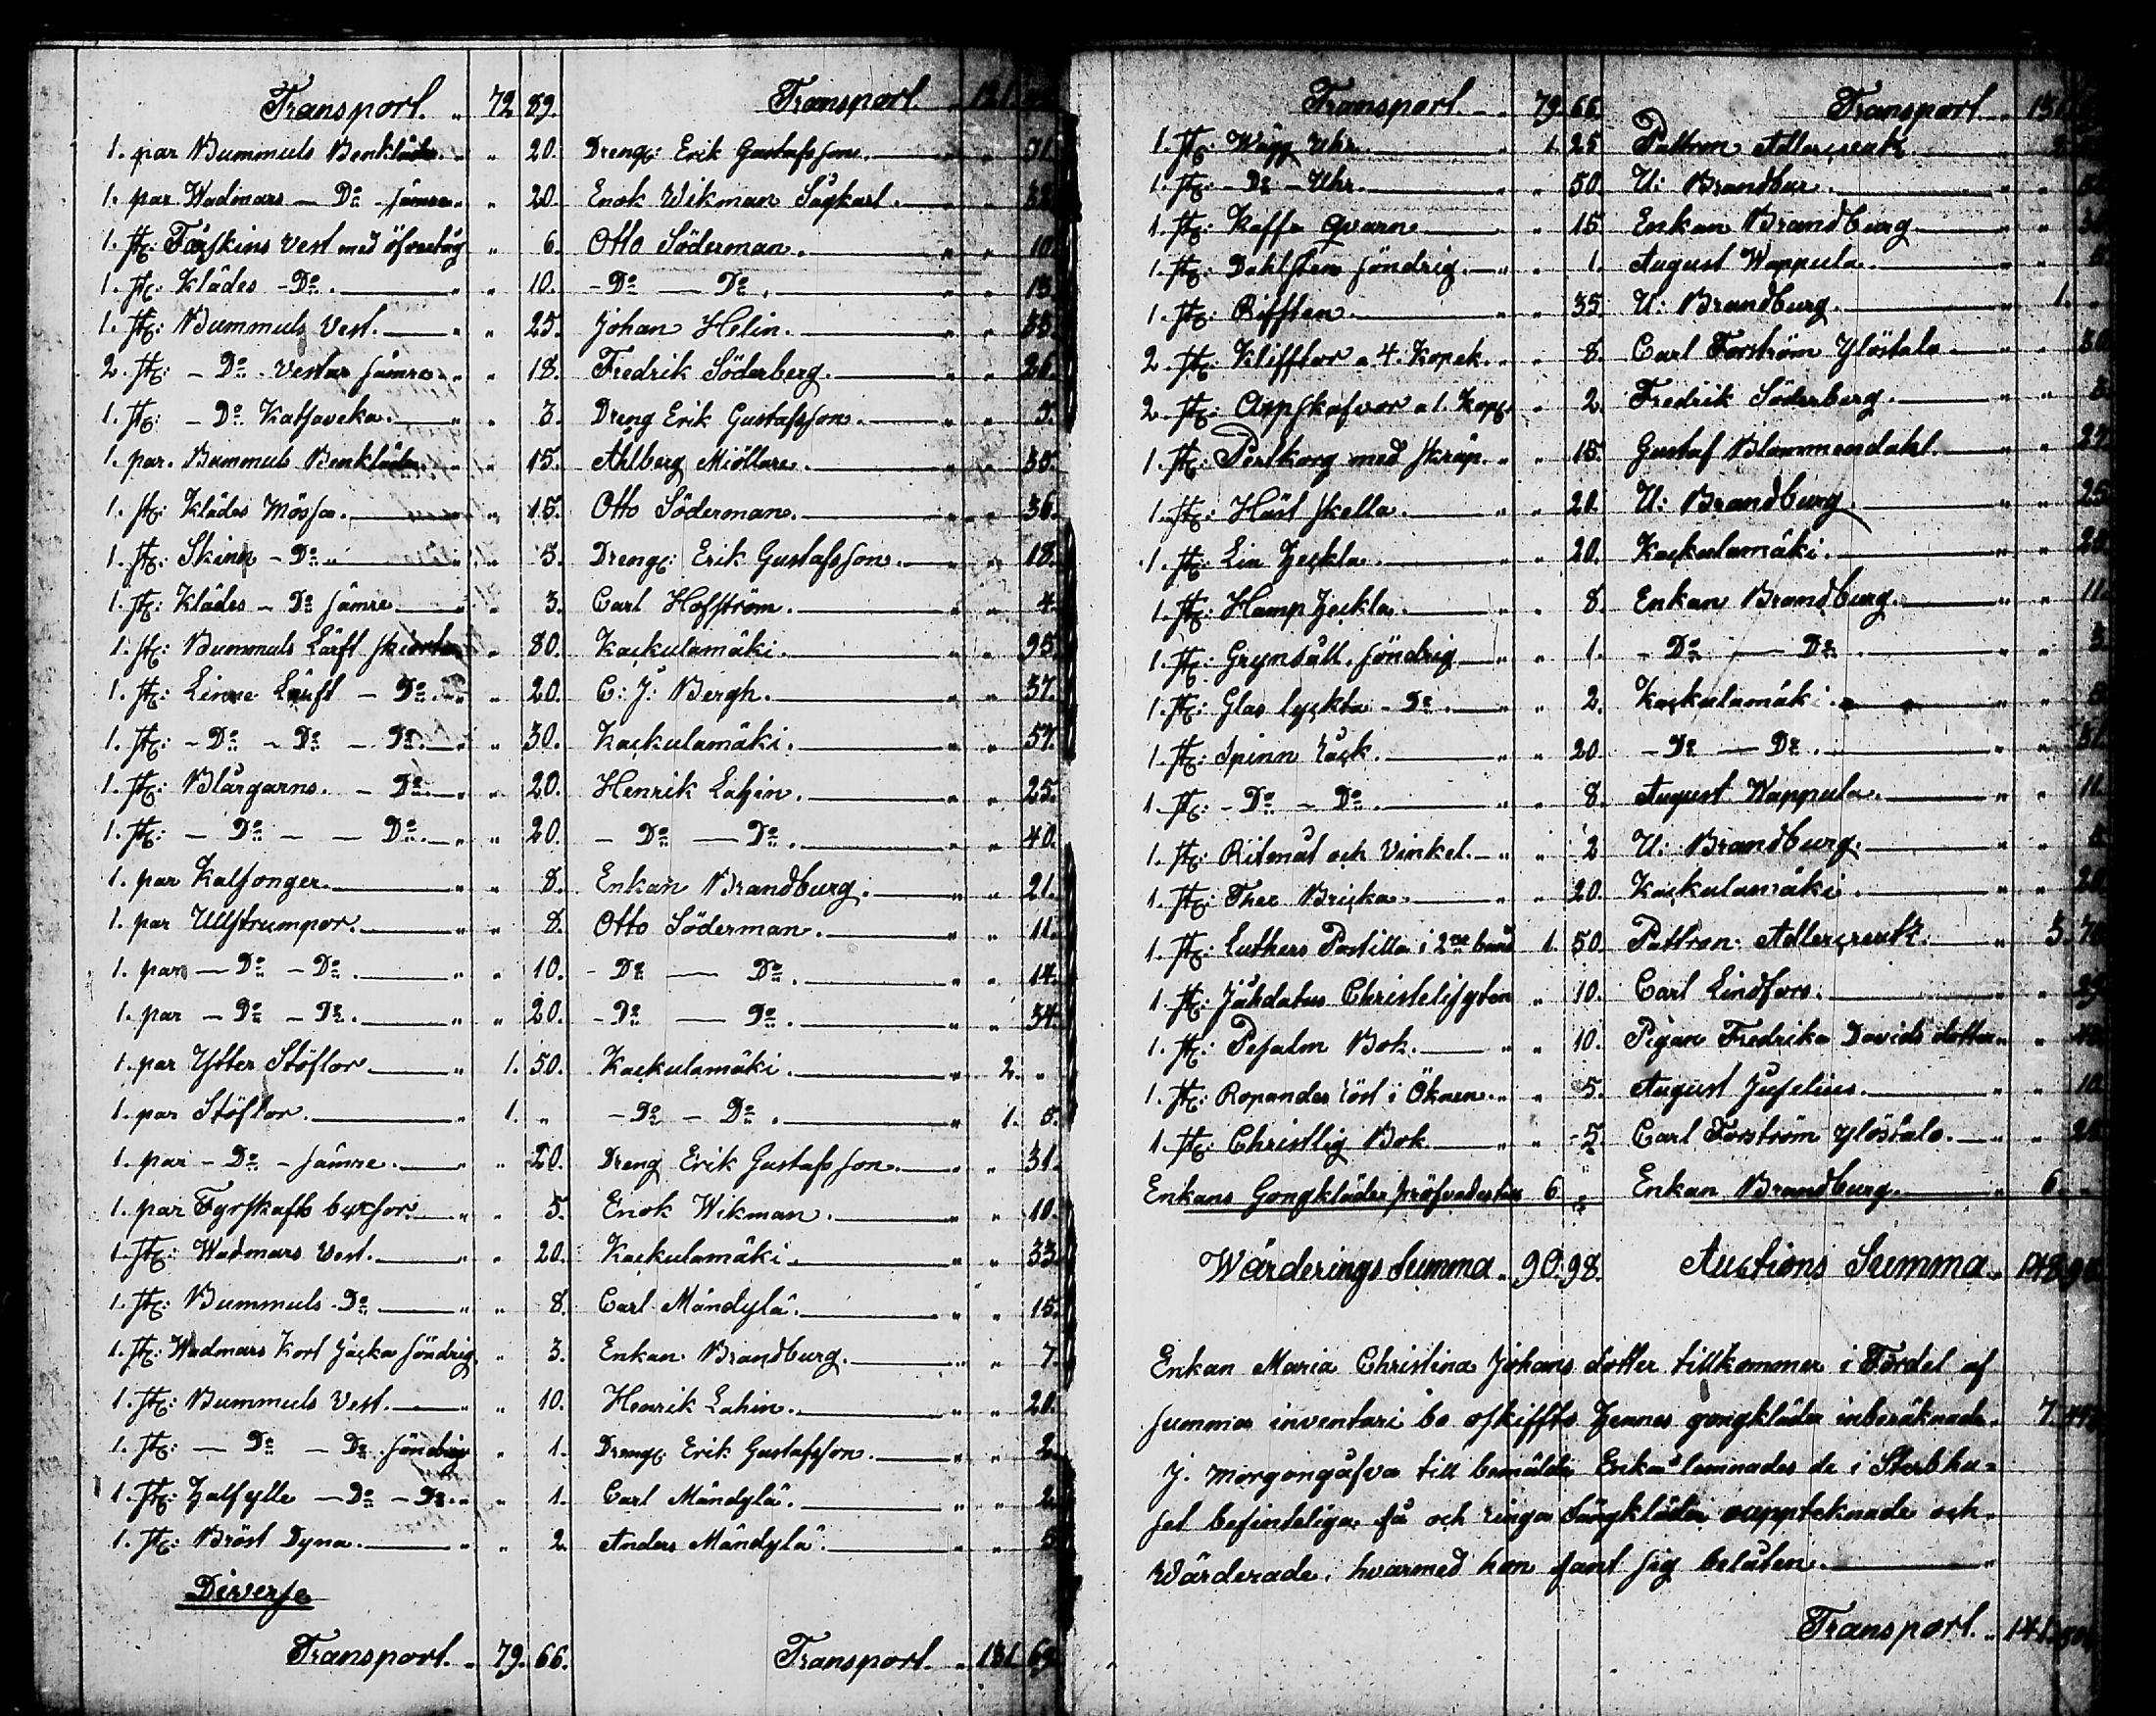 Transport. " 72 89. Transport. " 121.
1. par Bummuls Benkläder. " " 20. Dreng: Erik Gustafsson. " " 31.
1. par Wadmars — Do - sämre " " 20. Enok Wikman Sågkarl. " " 32
1. st: Fårskins Vest med öfvertåg " 6. Otto Söderman. " " 10.
1. st: Klädes - Do. " " 10. - Do — Do. " " 13.
1. st: Bummuls Vest. " " 25. Johan Helin. " " 33.
2. st: - Do. Vestar sämre. " " 18. Fredrik Söderberg. " " 26.
1. st: - Do Katsaveka. " " 3. Dreng Erik Gustafsson. " " 5.
1. par. Bummuls Benkläder. " " 15. Ahlberg Miöllare. " " 35.
1. st: Klädes Mössa. " " 15. Otto Söderman. " " 36.
1. st: Skinn - Do " " 5. Dreng: Erik Gustafsson. " " 18.
1. st: Klädes - Do sämre " " 3. Carl Hofström. " " 4.
1. st: Bummuls Lärft skiorta " 80. Kackulamäki. " " 95.
1. st: Linne Lärft - Do. " " 20. C: J: Bergh. " " 37.
1. st: - Do - Do - Do. " " 30. Kackulamäki. " " 57.
1. st: Blårgarns. - Do. " " 20. Henrik Lahin. " " 25.
1. st: - Do - - Do. " " 20. - Do — Do. " " 40.
1. par Kalsonger. " " 8. Enkan Brandburg. " " 21.
1. par Ullstrumpor. " " 8. Otto Söderman. " " 11.
1. par — Do - Do. " " 10. - Do — Do. " " 14.
1. par — Do - Do. " " 20. - Do — Do. " " 34.
1. par Ytter Stöflor " 1. 50. Kackulamäki. " 2. "
1. par Stöflor. " 1. " - Do - Do. " 1. 5.
1. par - Do - sämre. " " 20. Dreng Erik Gustafsson. " " 31.
1. par Fyrskafts byxsor. " " 5. Enok Wikman. " " 10.
1. st: Wadmars Vest. " " 20. Kackulamäki. " " 33.
1. st: Bummuls - Do. " " 8. Carl Mändylä. " " 15.
1. st: Wadmars Kort Jacka söndrig " 3. Enkan Brandburg. " " 7.
1. st: Bummuls Vest. " " 10. Henrik Lahin. " " 20.
1. st: — Do — Do. söndrig " 1. Dreng: Erik Gustafsson. " " 2.
1. st: Halfylle — Do - Do. " " 1. Carl Mändylä. " " 2.
1. st: Bröst Dyna. " " 2. Anders Mändylä. " " 5
Diverse
Transport. " 79. 66. Transport. " 131. 69.
Transport. " 79. 66. Transport. " 131.
1. st: Wägg Uhr. " 1. 25 Pattron Adlercreutz.
1. st: - Do - Uhr. " " 50. U: Brandbur. " "
1. st: Kaffe Qvarn " " 15. Enkan Brandburg " "
1. st: Dahlsten söndrig. " " 1. August Wappula. " "
1. st: Rifften. " " 35. U: Brandburg. " 1. "
2. st: Klifftor a 4. Kopek. " " 8. Carl Forström Ylöstalo " " 30.
2. st: Oxpskafvor a 1. Kop: " 2. Fredrik Söderberg. " "
1. st: Perlkorg med skräp. " " 15. Gustaf Blommendahl. " " 27.
1. st: Häst skella. " " 20. U: Brandburg. " " 25
1. st: Lin Heckla. " " 20. Kackulamäki. " " 20.
1. st: Hamp Heckla. " " 8. Enkan Brandburg. " " 11.
1. st: Grynsåll. söndrig " " 1. - Do — Do. " " 3.
1. st: Glas lyckta - Do. " " 2. Kackulamäki. " "
1. st: Spinn råck. " " 20. - Do — Do. " "
1. st: - Do - Do. " " 8. August Wappula. " " 11.
1. st: Ritmåt och Vinkel. " " 2 U: Brandburg. " "
1. st: Thee Bricka. " " 20. Kackulamäki. " "
1. st: Luthers Postilla i 2ne band 1. 50. Pattron Adlercreutz. " 3. 70
1. st: Juhdatus Christelisyten " 10. Carl Lindfors. " "
1. st: Psalm Bok. " " 10. Pigan Fredrika Davids dotter " "
1. st: Ropandes röst i Öknen. " " 5. August Juselius. " " 10
1. st: Christlig Bok. " " 5 Carl Forström Ylöstalo. " "
Enkans Gongkläder 6 " Enkan Brandburg. " 6. "
Wärderings Summa. 90. 98. Auctions Summa. 148.
Enkan Maria Christina Johans dotter tillkommer i Fördel af
summa inventari bo oskiffto hennes gongkläder inberäknade. 7.
J. morgongåfva till bemälde Enka lemnades de i Sterbhu=
set befinteliga få och ringa Sängkläder oappteknade och
Wärderade. hvarmed hon fant sig belåten. "
Transport. " 141.